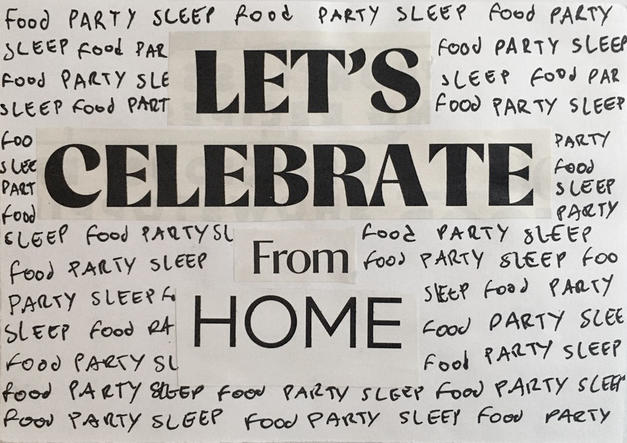 Food PARTY SLEEP Food PARTY SLEEP Food PARTY
SLEEP Food PAR LET'S Food PARTY SLEEP
Food PARTY SLE SLEEP Food PAR
SLEEP Food PART Food PARTY SLEEP
Foo CELEBRATE PARTY
SLEE Food
PART SLEEP
Food PARTY
SLEEP Food PARTY SL Food PARTY SLEEP
Food PARTY SLEEP From Food PARTY SLEEP Foo
PARTY SLEEP F HOME SLEEP Food PARTY
SLEEP Food PA Food PARTY SLEE
Food PARTY SL Food PARTY SLEEP
Food PARTY SLEEP Food PARTY SLEEP Food PARTY SLEEP
Food PARTY SLEEP Food PARTY SLEEP Food PARTY